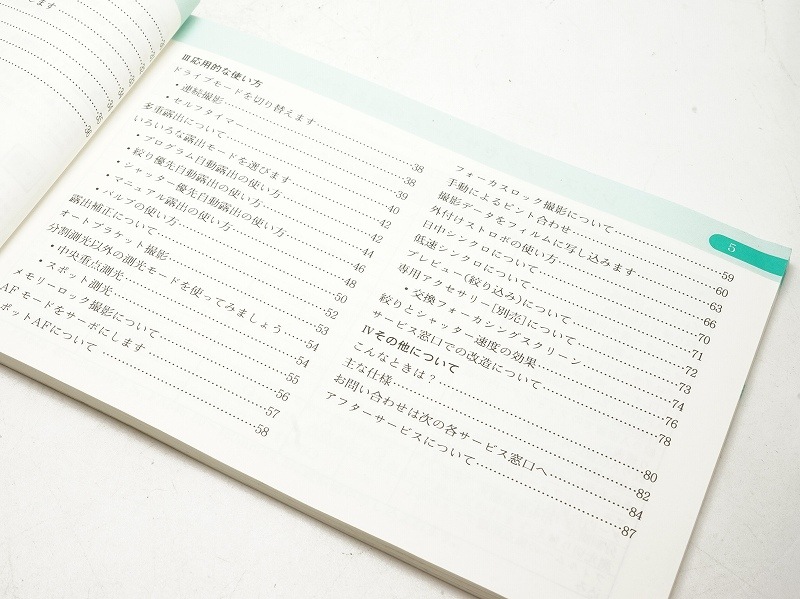 します
5
III応用的な使い方
ドライブモードを切り替えます……38
・連続撮影……38
・セルフタイマー……39
多重露出について……40
いろいろな露出モードを選びます……42
・プログラム自動露出の使い方……42
・絞り優先自動露出の使い方……44
・シャッター優先自動露出の使い方……46
・マニュアル露出の使い方……48
・バルブの使い方……50
露出補正について……52
オートブラケット撮影……53
分割測光以外の測光モードを使ってみましょう……54
・中央重点測光……54
・スポット測光……55
メモリーロック撮影について……56
AFモードをサーボにします……57
ポットAFについて……58
フォーカスロック撮影について……59
手動によるピント合わせ……60
撮影データをフィルムに写し込みます……63
外付けストロボの使い方……66
日中シンクロについて……70
低速シンクロについて……71
プレビュー(絞り込み)について……72
専用アクセサリー[別売]について……73
・交換フォーカシングスクリーン……74
絞りとシャッター速度の効果……76
サービス窓口での改造について……78
IVその他について
こんなときは?……80
主な仕様……82
お問い合わせは次の各サービス窓口へ……84
アフターサービスについて……87